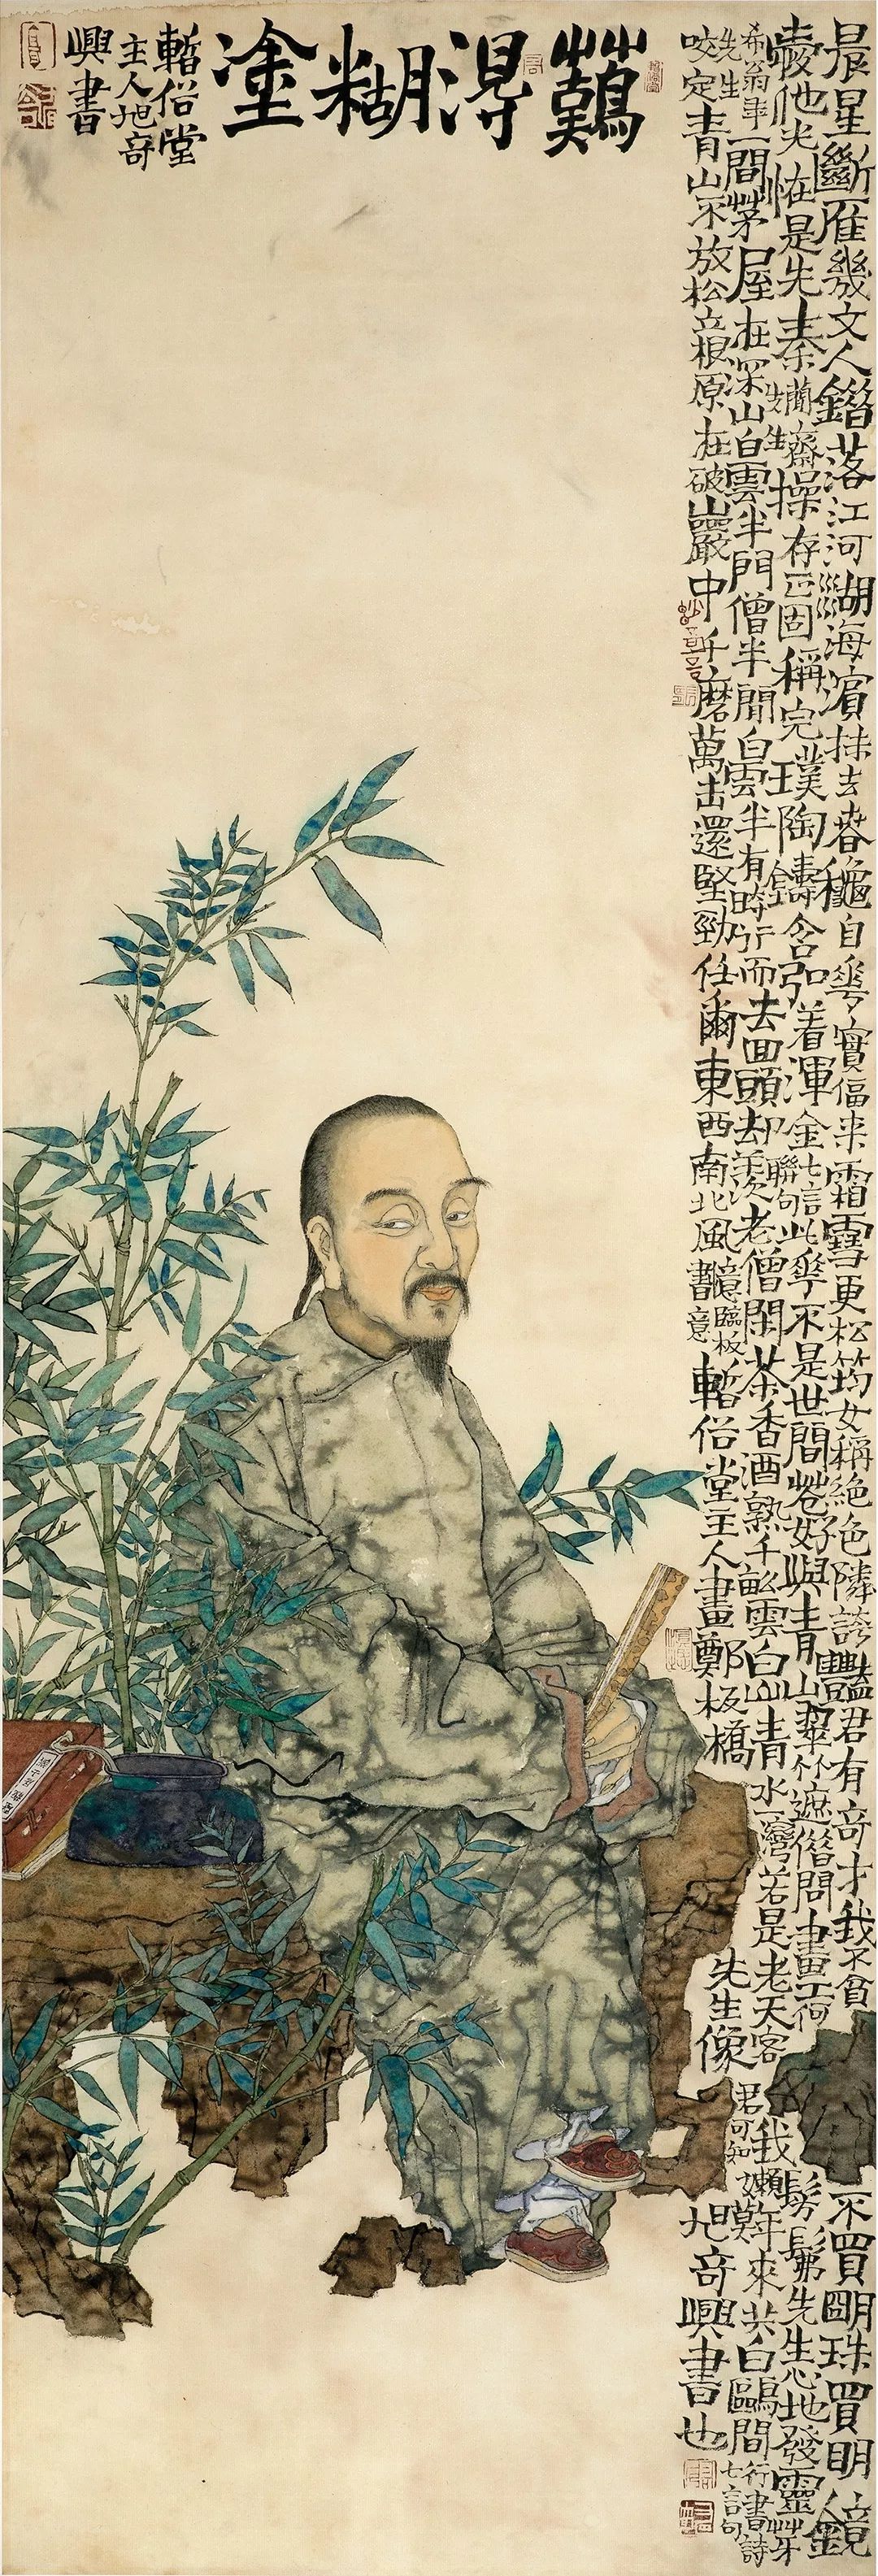 難得糊塗
暫俗堂
主人旭奇
興書
晨星斷雁幾文人錯落江河湖海濱抹去春穐自華實偪來霜雪更松筠女稱絕色隣誇豔君有奇才我不貧不買明珠買明鏡
愛他光怪是先秦簡齋先生操存正固稱完璞陶鑄含弘若渾金七言聯句此華不是世間花好與青山翠竹遮借問畫工何髣髴先生心地發靈芽
一間茅屋在深山白雲半間僧半間白雲半有時行雨去回頭却羨老僧閒茶香酒熟千畝雲白山青水一灣若是老天容我懶暮年來共白鷗間行書詩七言句
咬定青山不放松立根原在破山巖中千磨萬击還堅勁任爾東西南北風暫俗堂主人畫鄭板橋先生像旭奇興書也